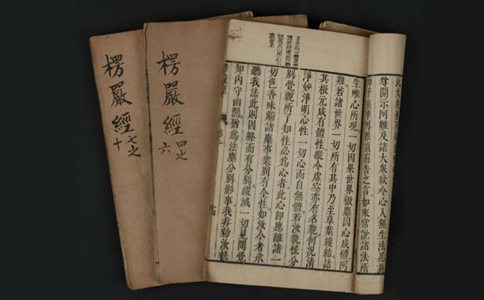 楞嚴經
七之十
楞嚴經
四之六
尊開示阿難及諸大衆欲令心入無生法忍
師子座摩阿難頂而告之言如來常說諸法所
生唯心所現一切因果世界微塵因心成體阿
難若諸世界一切所有其中乃至草葉縷結詰
其根元咸有體性縱令虛空亦有名貌何況清
淨妙淨明心性一切心而自無體若汝執悋分
別覺觀所了知性必為心者此心即應離諸一
切色香味觸諸塵事業別有全性如汝今者承
聽我法此則因聲而有分別縱滅一切見聞覺
知內守幽閒猶為法塵分別影事我非敕汝執